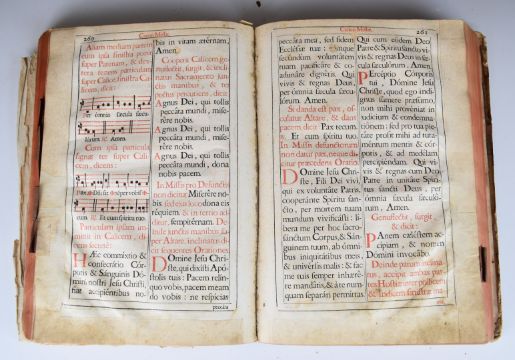 260
Canon Missæ.
Aliam mediam partem
cum ipsa particula
super Patenam, & dex-
tera tenens particulam
super Calicem, sinistra Ca-
licem, dicit:
Per omnia sæcula sæcu-
lorum. ℟. Amen.
Cum ipsa particula
signat ter super Cali-
cem, dicens:
cum. ℟. Et cum spiritu tuo.
Particulam ipsam im-
mittit in Calicem, di-
cens secretè:
HÆc commixtio &
consecratio Cór-
poris & Sánguinis Dó-
mini nostri Jesu Christi,
fiat accipiéntibus no-
bis in vitam ætérnam,
Amen.
Cooperit Calicem, ge-
nuflectit, surgit, & incli-
natus Sacramento, junctis
manibus, & ter
pectus percutiens, dicit:
Agnus Dei, qui tollis
peccáta mundi, mise-
rére nobis.
Agnus Dei, qui tollis
peccáta mundi, mi-
serére nobis.
Agnus Dei, qui tollis
peccáta mundi, dona
nobis pacem.
In Missis pro Defunctis
non dicitur Miserére no-
bis, sed ejus loco dona eis
réquiem, & in tertio ad-
ditur, sempitérnam. De-
inde junctis manibus su-
per Altare, inclinatus di-
cit sequentes Orationes.
DÓmine Jesu Chri-
ste, qui dixísti Apó-
stolis tuis: Pacem relín-
quo vobis, pacem meam
do vobis: ne respícias
261
Canon Missæ.
peccáta mea, sed fidem
Ecclésiæ tuæ: eámque
secúndum voluntátem
tuam pacificáre & co-
adunáre dignéris. Qui
vivis & regnas Deus, per
ómnia sæcula sæculó-
rum. Amen.
Si danda est pax, of-
culatur Altare, & dans
pacem, dicit: Pax tecum.
℟. Et cum spíritu tuo.
In Missis defunctorum
non datur pax, neque di-
citur præcedens Oratio.
DÓmine Jesu Chri-
ste, Fili Dei vivi,
qui ex voluntáte Patris,
cooperánte Spíritu san-
cto, per mortem tuam
mundum vivificásti: lí-
bera me per hoc sacro-
sánctum Corpus, & Sán-
guinem tuum, ab ómni-
bus iniquitátibus meis,
& univérsis malis: & fac
me tuis semper inhæré-
re mandátis, & à te num-
quam separári permíttas:
Qui cum eódem Deo
Patre & Spíritu sancto vi-
vis & regnas Deus in sæ-
cula sæculórum. Amen.
PErcéptio Córporis
tui, Dómine Jesu
Christe, quod ego indí-
gnus súmere præsúmo,
non mihi provéniat in
judícium & condemna-
tiónem: sed pro tua pie-
táte prosit mihi ad tuta-
méntum mentis & cór-
poris, & ad medélam
percipiéndam. Qui vi-
vis & regnas cum Deo
Patre in unitáte Spíri-
tus sancti Deus, per
ómnia sæcula sæculó-
rum, Amen.
Genuflectit, surgit,
& dicit:
PAnem cæléstem ac-
cípiam, & nomen
Dómini invocábo.